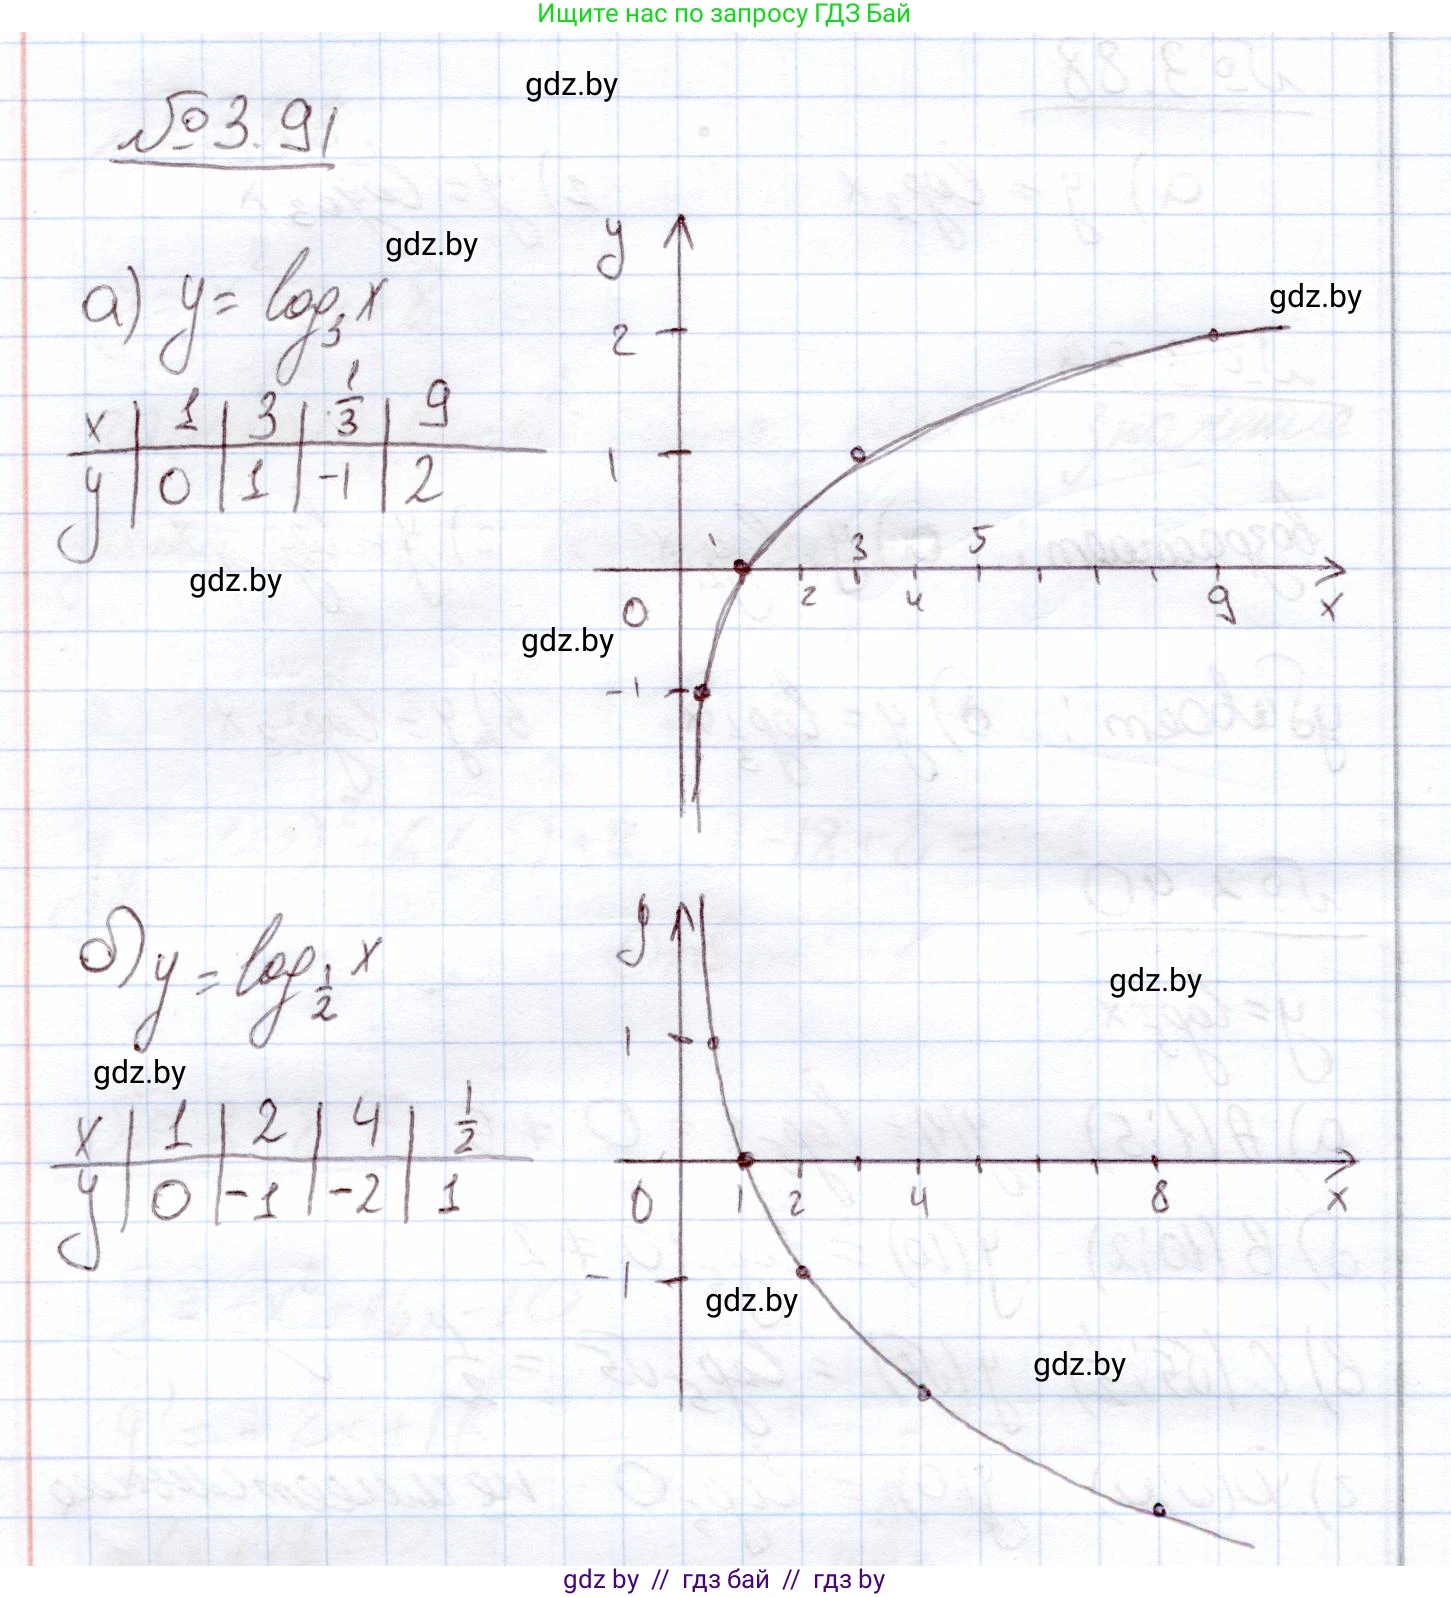 Ищите нас по запросу ГДЗ Бай
gdz.by
№3.91
gdz.by
а) y = log₃ x
x | 1 | 3 | 1/3 | 9
y | 0 | 1 | -1 | 2
gdz.by
y
gdz.by
2
1
1 3 5
0 2 4 9 x
gdz.by
-1
б) y = log_{1/2} x
gdz.by
x | 1 | 2 | 4 | 1/2
y | 0 | -1 | -2 | 1
y
gdz.by
1
0 1 2 4 8 x
-1
gdz.by
gdz.by
gdz by // гдз бай // гдз by